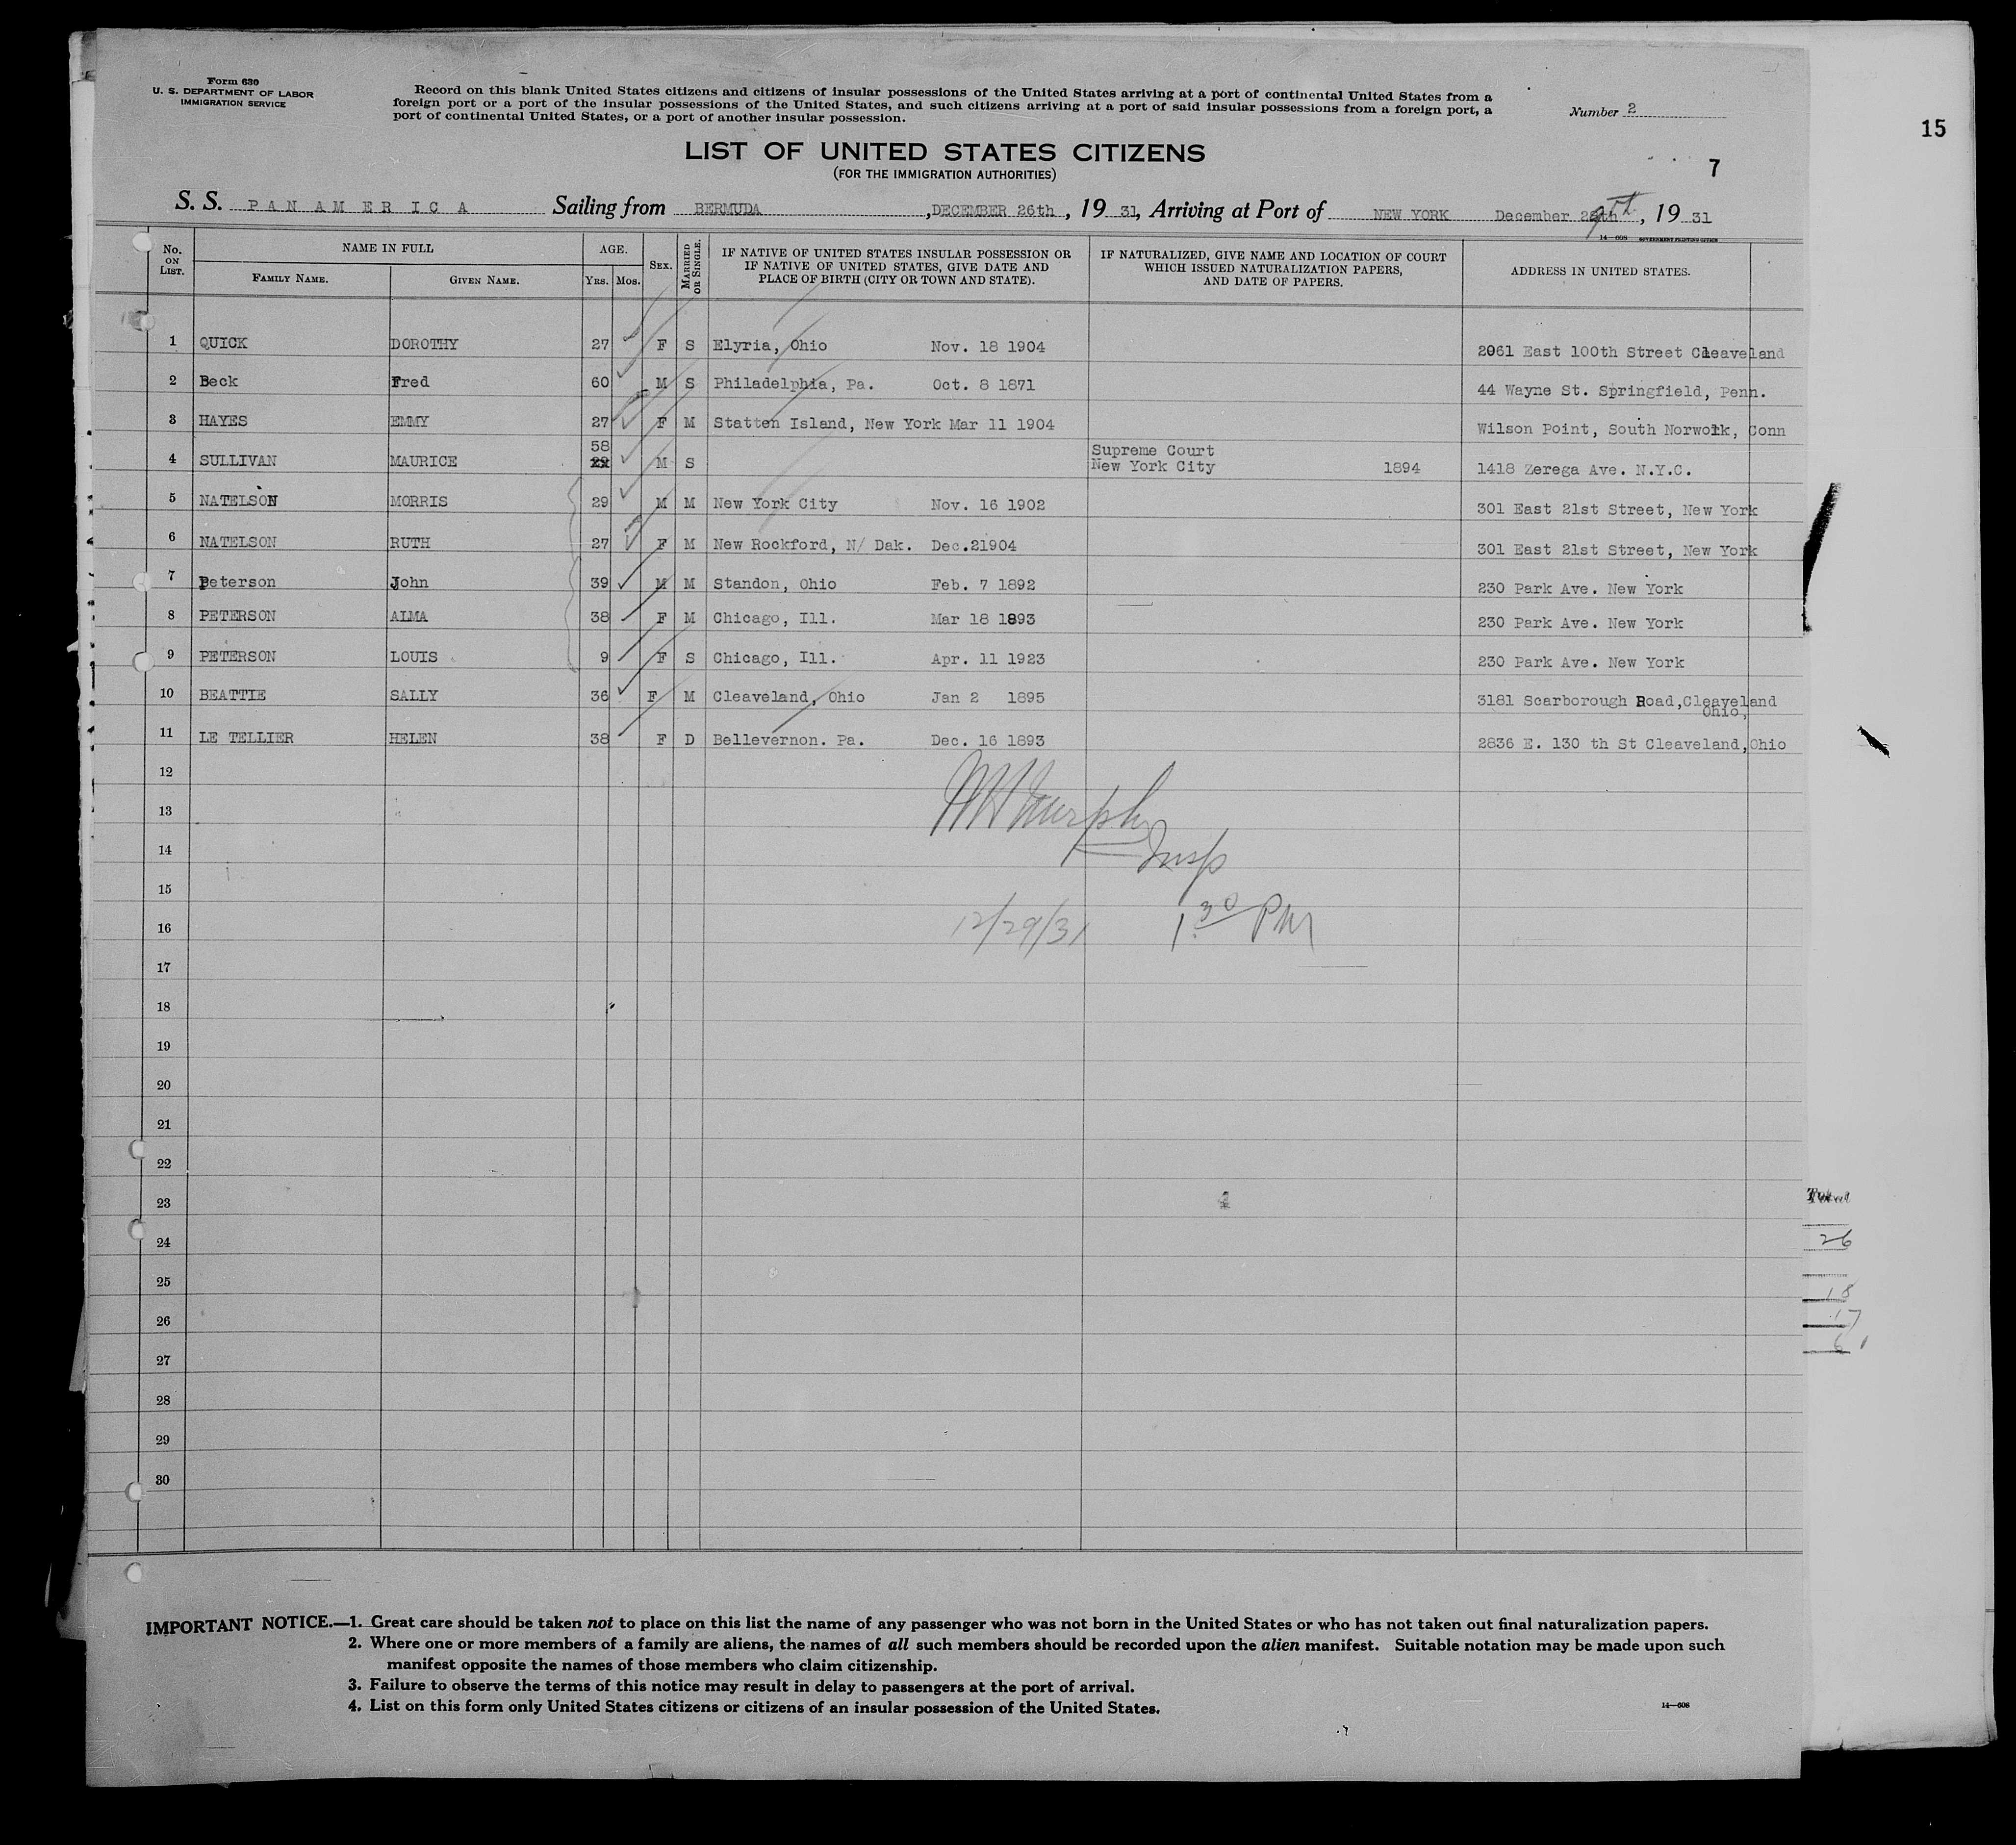 Form 630
U. S. DEPARTMENT OF LABOR
IMMIGRATION SERVICE
Record on this blank United States citizens and citizens of insular possessions of the United States arriving at a port of continental United States from a
foreign port or a port of the insular possessions of the United States, and such citizens arriving at a port of said insular possessions from a foreign port, a
port of continental United States, or a port of another insular possession.
Number 2
15
LIST OF UNITED STATES CITIZENS
(FOR THE IMMIGRATION AUTHORITIES)
7
S. S. PAN AMERICA Sailing from BERMUDA, DECEMBER 26th, 19 31, Arriving at Port of NEW YORK December 29th, 19 31
14—608 GOVERNMENT PRINTING OFFICE
No. ON LIST. NAME IN FULL FAMILY NAME. GIVEN NAME. AGE. YRS. MOS. SEX. MARRIED OR SINGLE. IF NATIVE OF UNITED STATES INSULAR POSSESSION OR IF NATIVE OF UNITED STATES, GIVE DATE AND PLACE OF BIRTH (CITY OR TOWN AND STATE). IF NATURALIZED, GIVE NAME AND LOCATION OF COURT WHICH ISSUED NATURALIZATION PAPERS, AND DATE OF PAPERS. ADDRESS IN UNITED STATES.
1 QUICK DOROTHY 27 F S Elyria, Ohio Nov. 18 1904 2061 East 100th Street Cleaveland
2 Beck Fred 60 M S Philadelphia, Pa. Oct. 8 1871 44 Wayne St. Springfield, Penn.
3 HAYES EMMY 27 F M Statten Island, New York Mar 11 1904 Wilson Point, South Norwolk, Conn
4 SULLIVAN MAURICE 58 M S Supreme Court New York City 1894 1418 Zerega Ave. N.Y.C.
5 NATELSON MORRIS 29 M M New York City Nov. 16 1902 301 East 21st Street, New York
6 NATELSON RUTH 27 F M New Rockford, N/ Dak. Dec.21904 301 East 21st Street, New York
7 Peterson John 39 M M Standon, Ohio Feb. 7 1892 230 Park Ave. New York
8 PETERSON ALMA 38 F M Chicago, Ill. Mar 18 1893 230 Park Ave. New York
9 PETERSON LOUIS 9 F S Chicago, Ill. Apr. 11 1923 230 Park Ave. New York
10 BEATTIE SALLY 36 F M Cleaveland, Ohio Jan 2 1895 3181 Scarborough Road, Cleaveland Ohio,
11 LE TELLIER HELEN 38 F D Bellevernon. Pa. Dec. 16 1893 2836 E. 130 th St Cleaveland, Ohio
12
13 Murphy
14 Insp
15
16 12/29/31 1 30 PM
17
18
19
20
21
22
23
Total
24
26
25
18
26
17
27
28
29
30
IMPORTANT NOTICE.—1. Great care should be taken not to place on this list the name of any passenger who was not born in the United States or who has not taken out final naturalization papers.
2. Where one or more members of a family are aliens, the names of all such members should be recorded upon the alien manifest. Suitable notation may be made upon such
manifest opposite the names of those members who claim citizenship.
3. Failure to observe the terms of this notice may result in delay to passengers at the port of arrival.
4. List on this form only United States citizens or citizens of an insular possession of the United States.
14—608